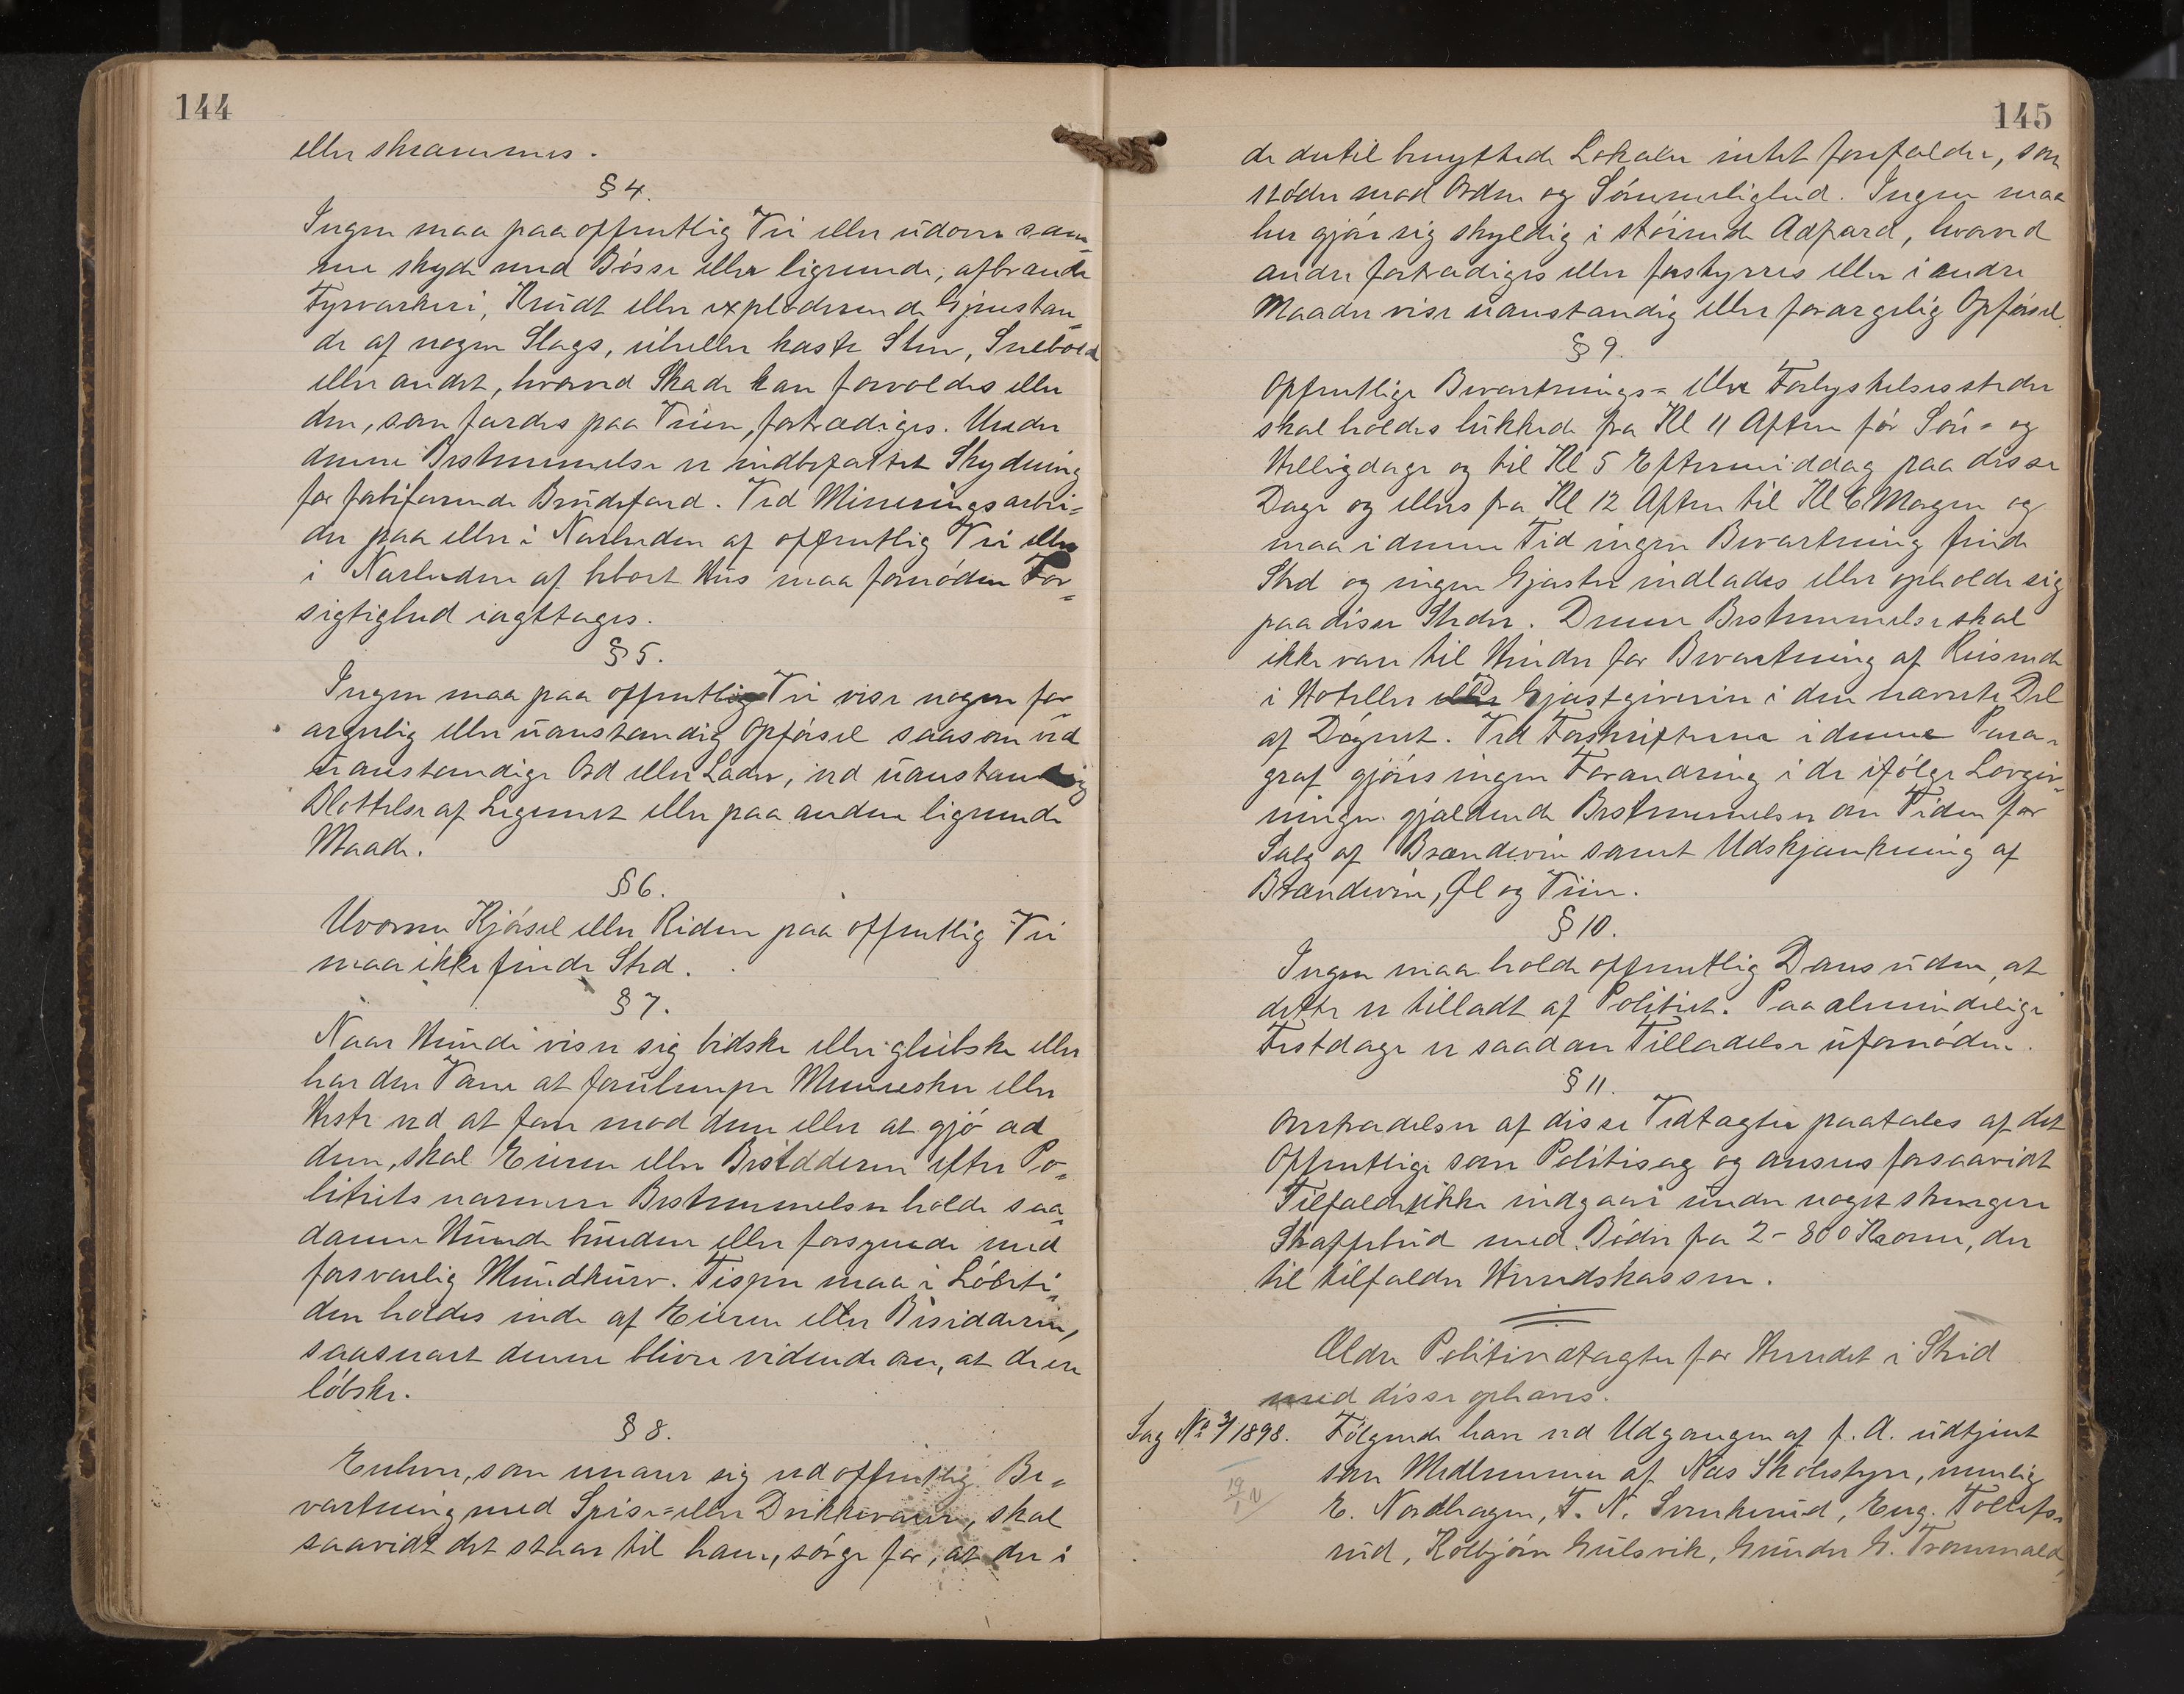 144
eller skræmmes.
§ 4.
Ingen maa paa offentlig Vei eller udover sam-
me skyde med Bösse eller lignende, afbrænde
Fyrværkeri, Krudt eller exploderende Gjenstan-
de af nogen Slags, ei heller kaste Sten, Snebold
eller andet, hvorved Skade kan forvoldes eller
den, som færdes paa Veien, fortrædiges. Under
denne Bestemmelse er indbefattet Skydning
for forbifarende Brudefærd. Ved Mineringsarbei-
der paa eller i Nærheden af offentlig Vei eller
i Nærheden af beboet Hus maa fornöden For-
sigtighed iagttages.
§ 5.
Ingen maa paa offentlig Vei vise nogen for-
argelig eller uanstændig Opförsel saasom ved
uanstændige Ord eller Lader, ved uanstændig
Blottelse af Legemet eller paa anden lignende
Maade.
§ 6.
Uvorren Kjörsel eller Riden paa offentlig Vei
maa ikke finde Sted.
§ 7.
Naar Hunde viser sig bidske eller glubske eller
har den Vane at forulempe Mennesker eller
Heste ved at fare mod dem eller at gjö ad
dem, skal Eieren eller Besidderen efter Po-
litiets nærmere Bestemmelser holde saa-
danne Hunde bundne eller forsynede med
forsvarlig Mundkurv. Tisper maa i Löbeti-
den holdes inde af Eieren eller Besidderen,
saasnart denne bliver vidende om, at de er
löbske.
§ 8.
Enhver, som ernærer sig ved offentlig Be-
vertning med Spise- eller Drikkevarer, skal
saavidt det staar til ham, sörge for, at der i
145
de dertil benyttede Lokaler intet forefalder, som
stöder mod Orden og Sömmelighed. Ingen maa
her gjöre sig skyldig i stöiende Adfærd, hvorved
andre fortrædiges eller forstyrres eller i andre
Maader vise uanstændig eller forargelig Opförsel.
§ 9.
Offentlige Bevertnings- eller Forlystelsessteder
skal holdes lukkede fra Kl 11 Aften för Sön- og
Helligdage og til Kl 5 Eftermiddag paa disse
Dage og ellers fra Kl 12 Aften til Kl 6 Morgen og
maa i denne Tid ingen Bevertning finde
Sted og ingen Gjæster indlades eller opholde sig
paa disse Steder. Denne Bestemmelse skal
ikke være til Hinder for Bevertning af Reisende
i Hoteller eller Gjæstgiverier i den nævnte Del
af Dögnet. Ved Forskrifterne i denne Para-
graf gjöres ingen Forandring i de ifölge Lovgiv-
ningen gjældende Bestemmelser om Tiden for
Salg af Brændevin samt Udskjænkning af
Brændevin, Øl og Viin.
§ 10.
Ingen maa holde offentlig Dans uden, at
dette er tilladt af Politiet. Paa almindelige
Festdage er saadan Tilladelse ufornöden.
§ 11.
Overtrædelser af disse Vedtægter paatales af det
Offentlige som Politisag og ansees forsaavidt
Tilfældet ikke indgaar under noget strengere
Straffebud med Böder fra 2 - 800 Kroner, der
til tilfalder Herredskassen.
Ældre Politivedtægter for Herredet i Strid
med disse ophæves.
Sag No 3/1898. Fölgende har ved Udgangen af f. A. udtjent
som Medlemmer af Nes Skolestyre, nemlig
19/1
E. Nordhagen, T. N. Svenkerud, Eng. Tollefs-
rud, Kolbjörn Gulsvik, Gunder G. Trommald,